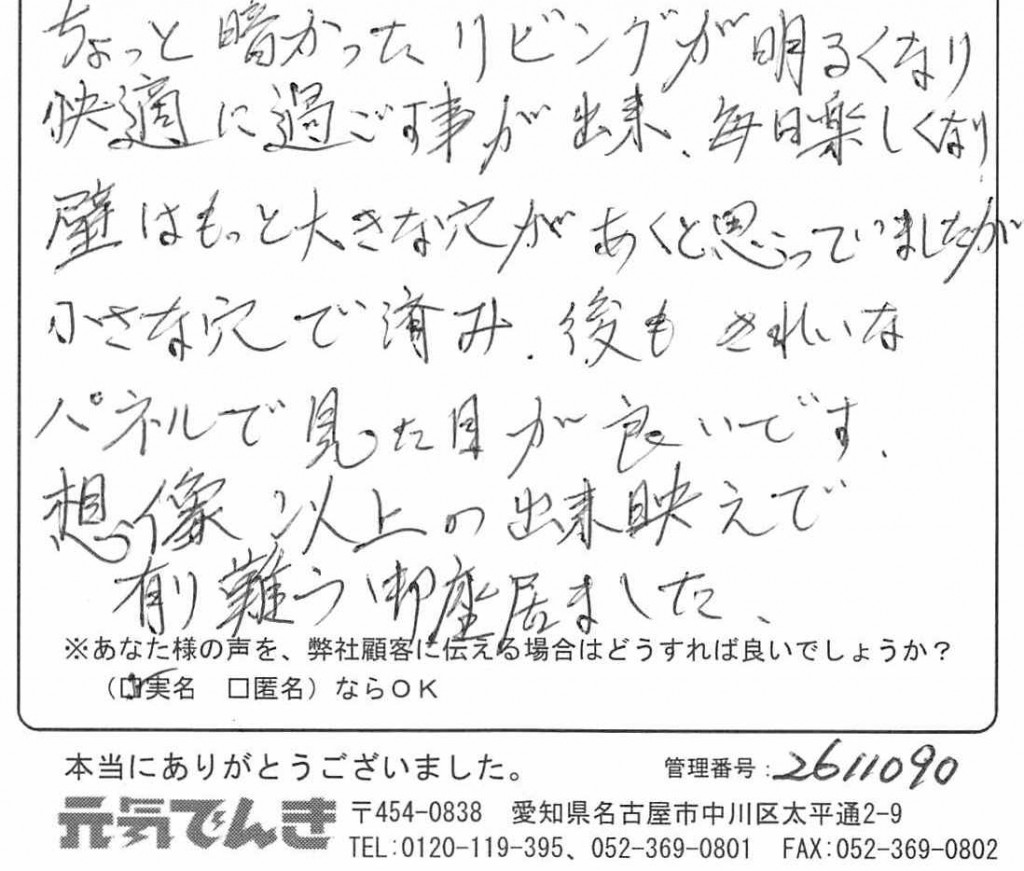 ちょっと暗かったリビングが明るくなり
快適に過ごす事が出来、毎日楽しくなり
壁はもっと大きな穴があくと思っていましたが
小さな穴で済み、後もきれいな
パネルで見った目が良いです、
想像以上の出来映えで
有り難う御座居ました、
※あなた様の声を、弊社顧客に伝える場合はどうすれば良いでしょうか？
（☑実名　□匿名）ならＯＫ
本当にありがとうございました。
管理番号：2611090
元気でんき
〒454-0838　愛知県名古屋市中川区太平通2-9
TEL:0120-119-395、052-369-0801　FAX:052-369-0802